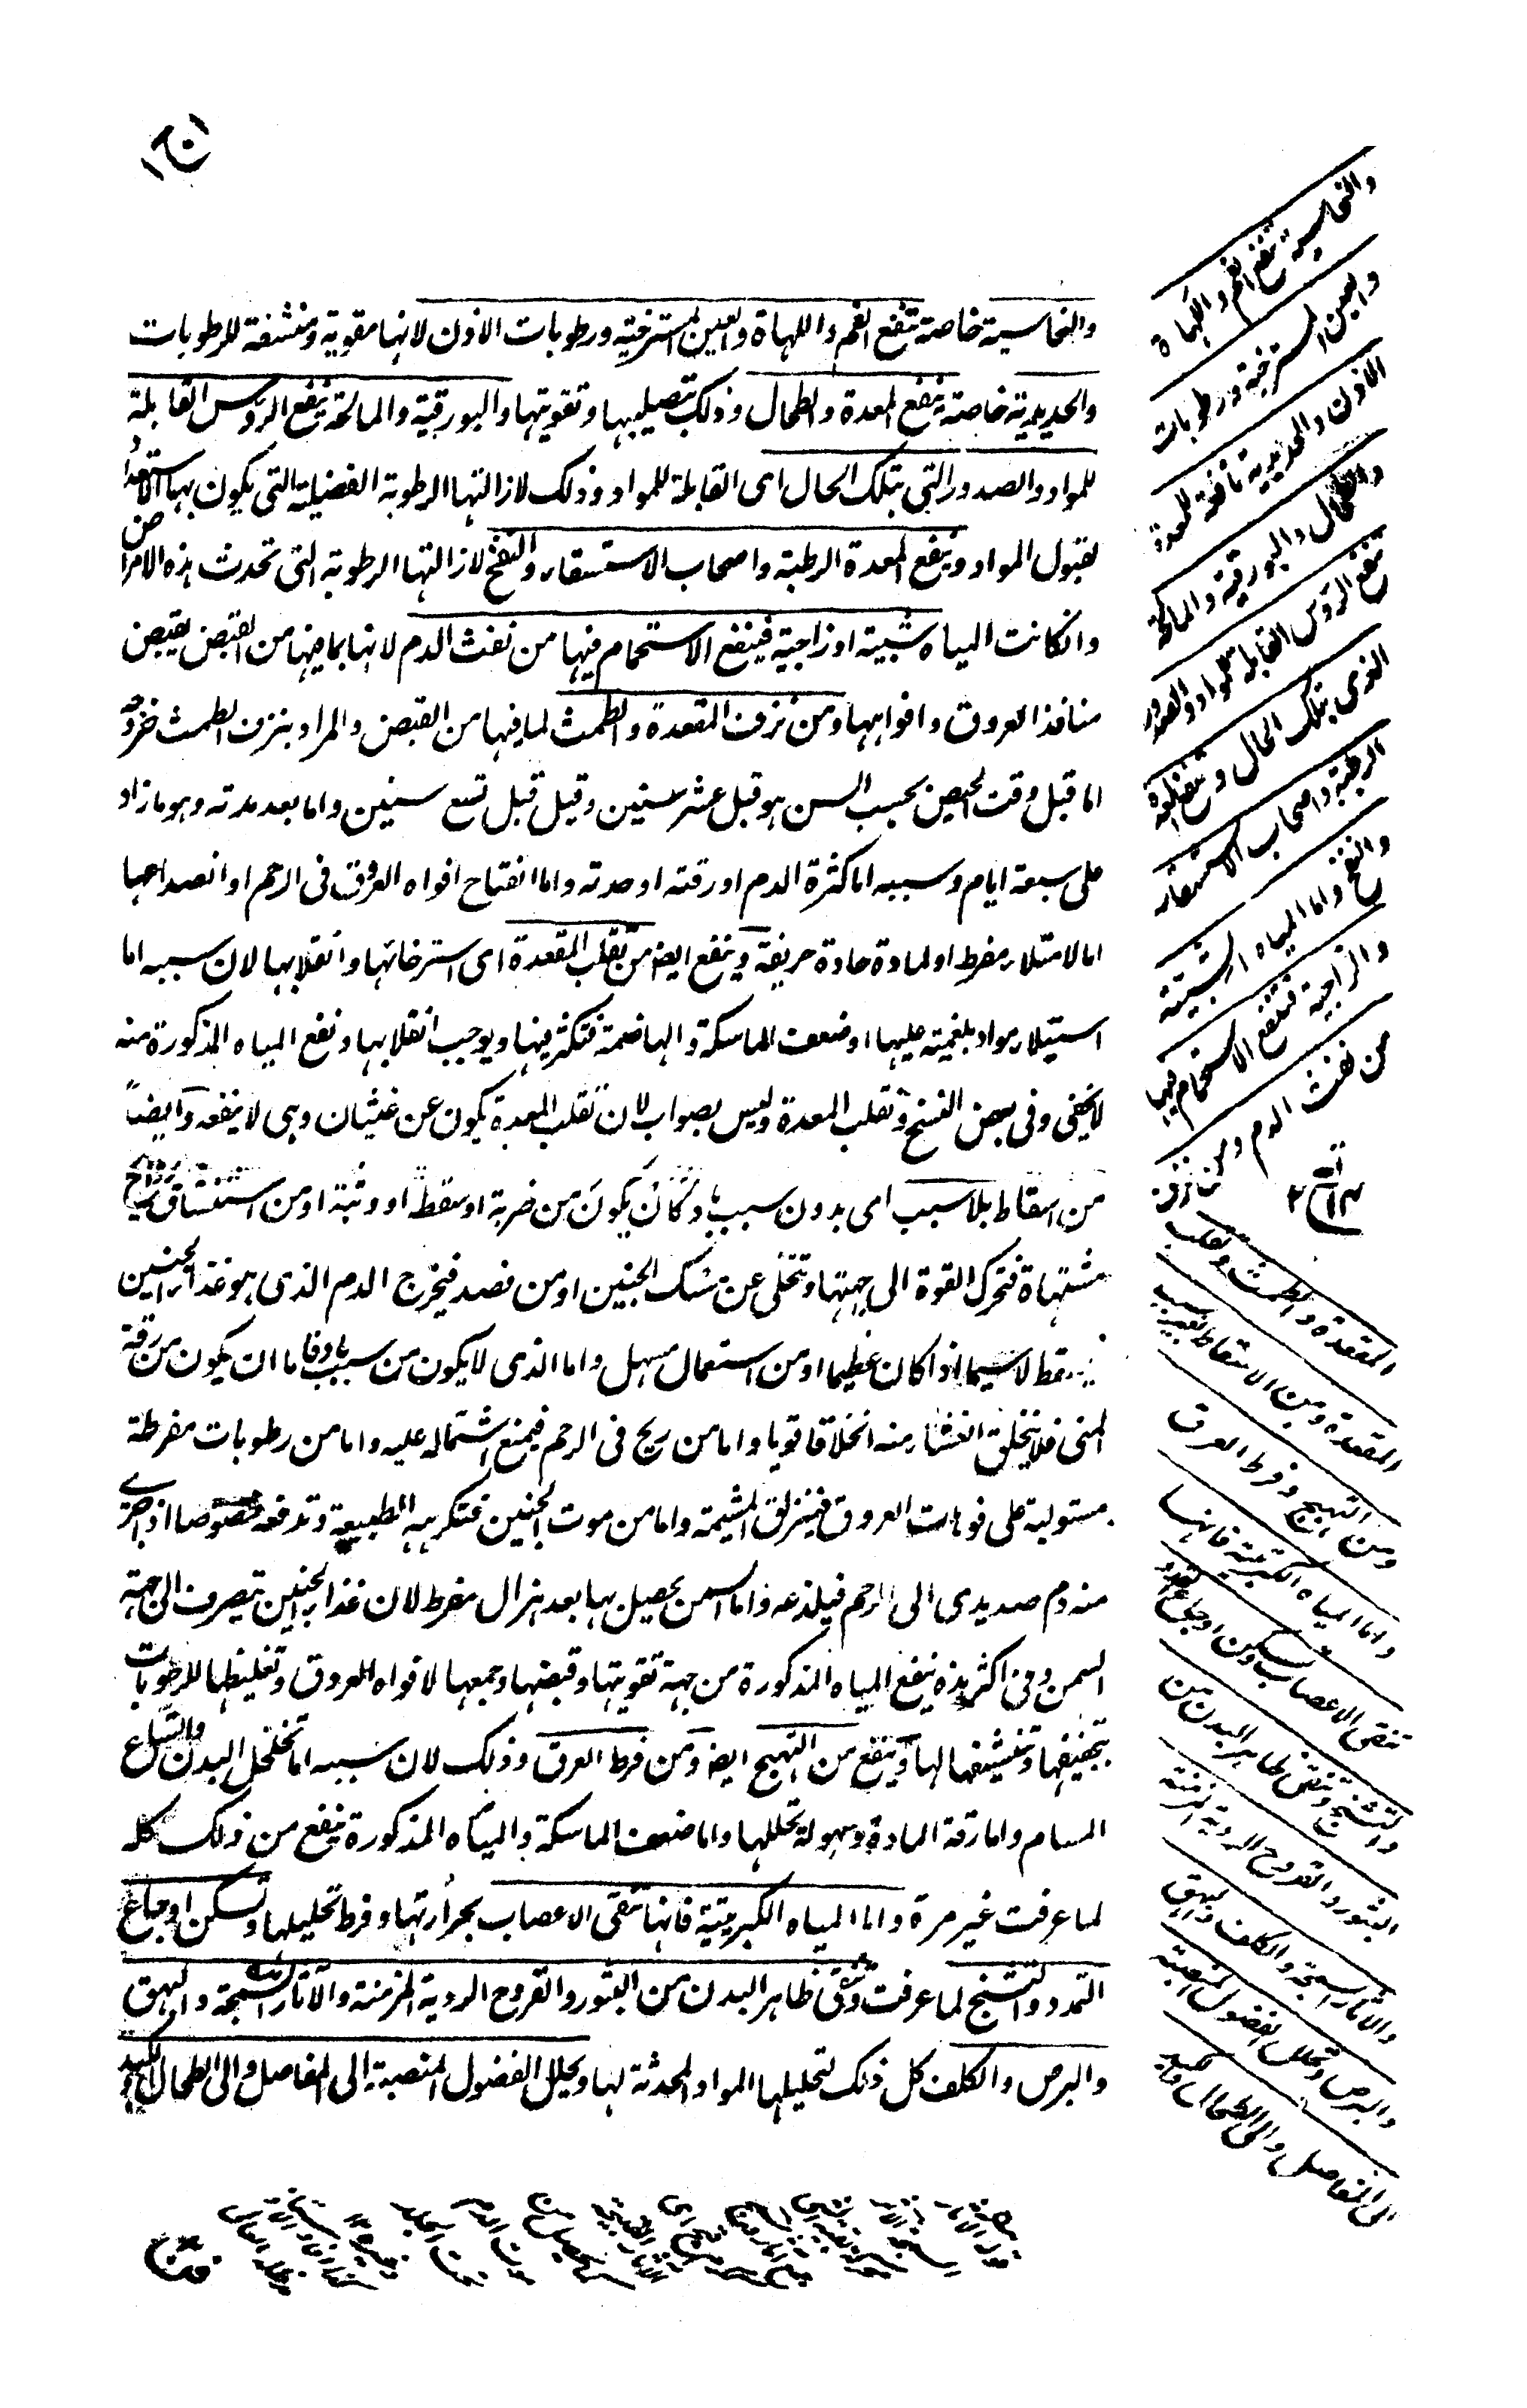 والنحاسية خاصة تنفع الفم واللهاة والعين المسترخية ورطوبات الاذن لانها مقوية ومنشفة للرطوبات
والحديدية خاصة ينفع المعدة والطحال وذلك بتصليبها وتقويتها والبورقية والمالحة ينفع الرؤس القابلة
للمواد والصدور التى بتلك الحال اى القابلة للمواد وذلك لازالتها الرطوبة الفضلية التى يكون بها الاستعداد
لقبول المواد وينفع المعدة الرطبة واصحاب الاستسقاء والنفخ لازالتها الرطوبة التى تحدث هذه الامراض
وانكانت المياه شبية او زاجية فينفع الاستحمام فيها من نفث الدم لانها بما فيها من القبض يقبض
منافذ العروق وافواهها ومن نزف المقعدة والطمث لما فيها من القبض والمراد بنزف الطمث خروجه
اما قبل وقت الحيض بحسب السن هو قبل عشر سنين وقيل قبل تسع سنين واما بعد مدته وهو ما زاد
على سبعة ايام وسببه اما كثرة الدم او رقته او حدته واما انفتاح افواه العروق فى الرحم او انصداعها
اما لامتلاء مفرط او لمادة حادة حريفة وينفع ايضه من تقلب المقعدة اى استرخائها وانقلابها لان سببه اما
استيلاء مواد بلغمية عليها او ضعف الماسكة والهاضمة فتكثر فيها ويوجب انقلابها ونفع المياه المذكورة منه
لا يخفى وفى بعض النسخ وتقلب المعدة وليس بصواب لان تقلب المعدة يكون عن غثيان وهى لا ينفعه وايضاً
من اسقاط بلا سبب اى بدون سبب باد كان يكون من ضربة او سقطة او وثبة او من استنشاق روائح
مشتهاة فتحرك القوة الى جهتها وتتخلى عن مسك الجنين او من فصد فيخرج الدم الذى هو غذاء الجنين
لا سيما اذا كان عظيما او من استعمال مسهل واما الذى لا يكون من سبب باد فاما ان يكون من رقة
المنى فلا يتخلق الغشاء منه انخلاقا قويا واما من ريح فى الرحم فيمنع اشتماله عليه واما من رطوبات مفرطة
مستولية على فوهات العروق فيتزلق المشيمة واما من موت الجنين فتكرهه الطبيعة وتدفعه خصوصا اذا جرى
منه دم صديدى الى الرحم فيلذعه واما لسمن يحصل بها بعد هزال مفرط لان غذاء الجنين يتصرف الى جهة
السمن وفى اكثر هذه ينفع المياه المذكورة من جهة تقويتها وقبضها وجمعها لافواه العروق وتغليظها للرطوبات
بتجفيفها وتنشيفها لها وينفع من التهيج ايضه ومن فرط العرق وذلك لان سببه اما تخلخل البدن واتساع
المسام واما رقة المادة وسهولة تحللها واما ضعف الماسكة والمياه المذكورة ينفع من ذلك كله
لما عرفت غير مرة واما المياه الكبريتية فانها تنقى الاعصاب بحرارتها وفرط تحليلها وتسكن اوجاع
التمدد والتشنج لما عرفت وتنقى ظاهر البدن من البثور والقروح الردية المزمنة والآثار السمجة والبهق
والبرص والكلف كل ذلك لتحليلها المواد المحدثة لها ويحلل الفضول المنصبة الى المفاصل والى الطحال والكبد
والنحاسية تنفع الفم واللهاة
والعين المسترخية ورطوبات
الاذن والحديدية نافعة للمعدة
والطحال والبورقية والمالحة
تنفع الرؤس القابلة للمواد والصدور
الذى بتلك الحال وتنفع المعدة
الرطبة واصحاب الاستسقاء
والنفخ واما المياه الشبية
والزاجية فتنفع الاستحمام فيها
من نفث الدم ومن نزف
المقعدة والطمث وتقلب
المقعدة ومن الاسقاط بغير سبب
ومن التهيج وفرط العرق
واما المياه الكبريتية فانها
تنقى الاعصاب وتسكن اوجاع التمدد
والتشنج وتنقى ظاهر البدن من
البثور والقروح الردية المزمنة
والآثار السمجة والكلف والبهق
والبرص وتحلل الفضول المنصبة
الى المفاصل والى الطحال والكبد